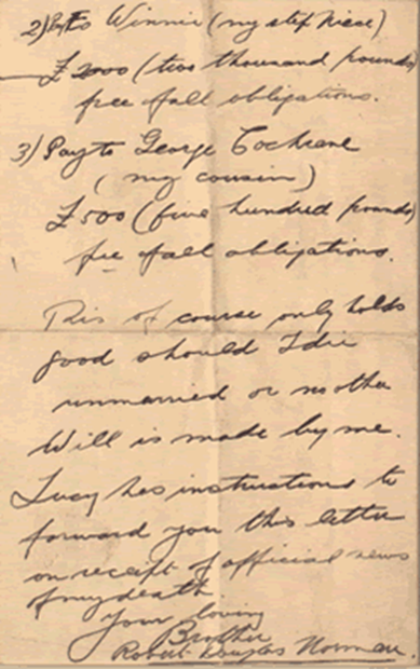 2) Pay to Winnie (my step niece)
£2000 (two thousand pounds)
free of all obligations.
3) Pay to George Cochrane
(my cousin)
£500 (five hundred pounds)
free of all obligations.
This of course only holds
good should I die
unmarried or no other
Will is made by me.
Lucy has instructions to
forward you this letter
on receipt of official news
of my death.
Your loving
Brother
Robert Douglas Norman.